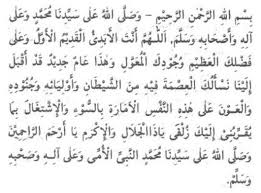 بِسْمِ اللهِ الرَّحْمٰنِ الرَّحِيْمِ - وَصَلَّى اللهُ عَلَى سَيِّدِنَا مُحَمَّدٍ وَعَلَى
آلِهِ وَأَصْحَابِهِ وَسَلَّمَ. اَللّٰهُمَّ أَنْتَ الْأَبَدِيُّ الْقَدِيْمُ الْأَوَّلُ وَعَلَى
فَضْلِكَ الْعَظِيْمِ وَجُوْدِكَ الْمُعَوَّلِ وَهٰذَا عَامٌ جَدِيْدٌ قَدْ أَقْبَلَ
إِلَيْنَا نَسْأَلُكَ الْعِصْمَةَ فِيْهِ مِنَ الشَّيْطَانِ وَأَوْلِيَائِهِ وَجُنُوْدِهِ
وَالْعَوْنَ عَلَى هٰذِهِ النَّفْسِ الْأَمَارَةِ بِالسُّوْءِ وَالْاِشْتِغَالَ بِمَا
يُقَرِّبُنِيْ إِلَيْكَ زُلْفَى يَاذَا الْجَلَالِ وَالْإِكْرَمِ يَا أَرْحَمَ الرَّاحِمِيْنَ
وَصَلَّى اللهُ عَلَى سَيِّدِنَا مُحَمَّدٍ النَّبِيِّ الْأُمِّيِّ وَعَلَى آلِهِ وَصَحْبِهِ
وَسَلَّمَ.